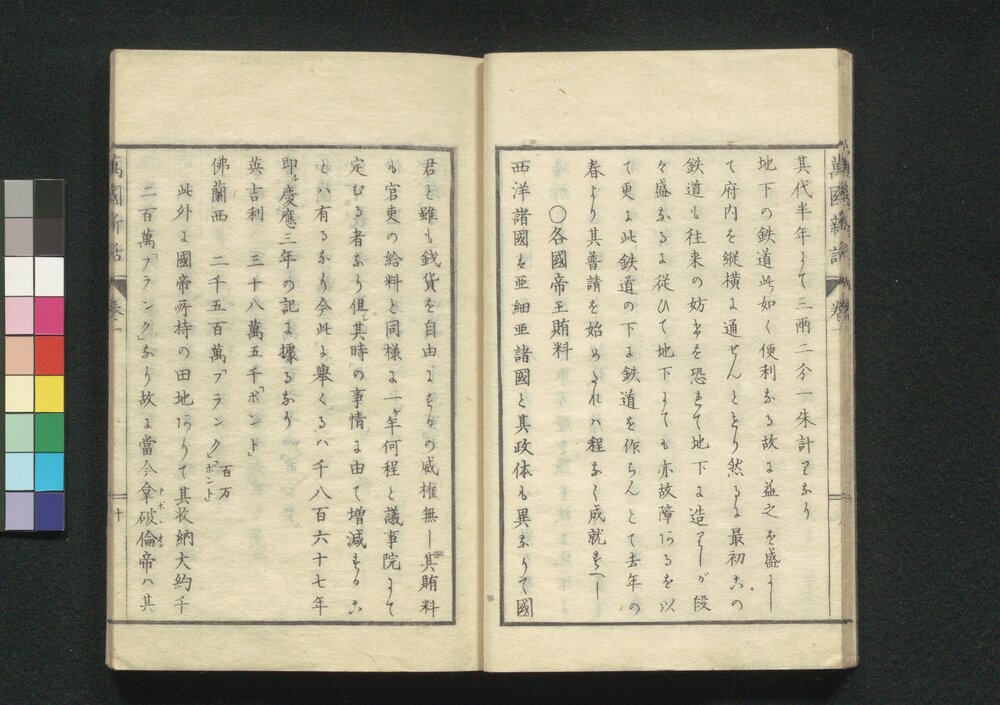 其代半年にて三兩二分一朱計りなり
地下の鉄道此如く便利なる故に益之を盛にし
て府内を縦横に通ぜんとせり然るに最初この
鉄道も往来の妨げを恐れて地下に造りしが段
々盛なるに従ひて地下にても亦故障あるを以
て更に此鉄道の下に鉄道を作らんとて去年の
春より其普請を始めたれハ程なく成就すべし
〇各國帝王賄料
西洋諸國ハ亜細亜諸國と其政体も異なりて國
君と雖も銭貨を自由にするの威權無し其賄料
も官吏の給料と同様に一ヶ年何程と議事院にて
定むる者なり但シ其時の事情に由て増減するこ
とハ有るなり今此に擧くるハ千八百六十七年
即チ慶應三年の記に據るなり
英吉利 三十八萬五千「ポンド」
佛蘭西 二千五百萬「フランク」百万「ポンド」
此外に國帝所持の田地ありて其收納大約千
二百萬「フランク」なり故に當今拿破倫帝ハ其
ナポレオン
萬國新話
巻二
十